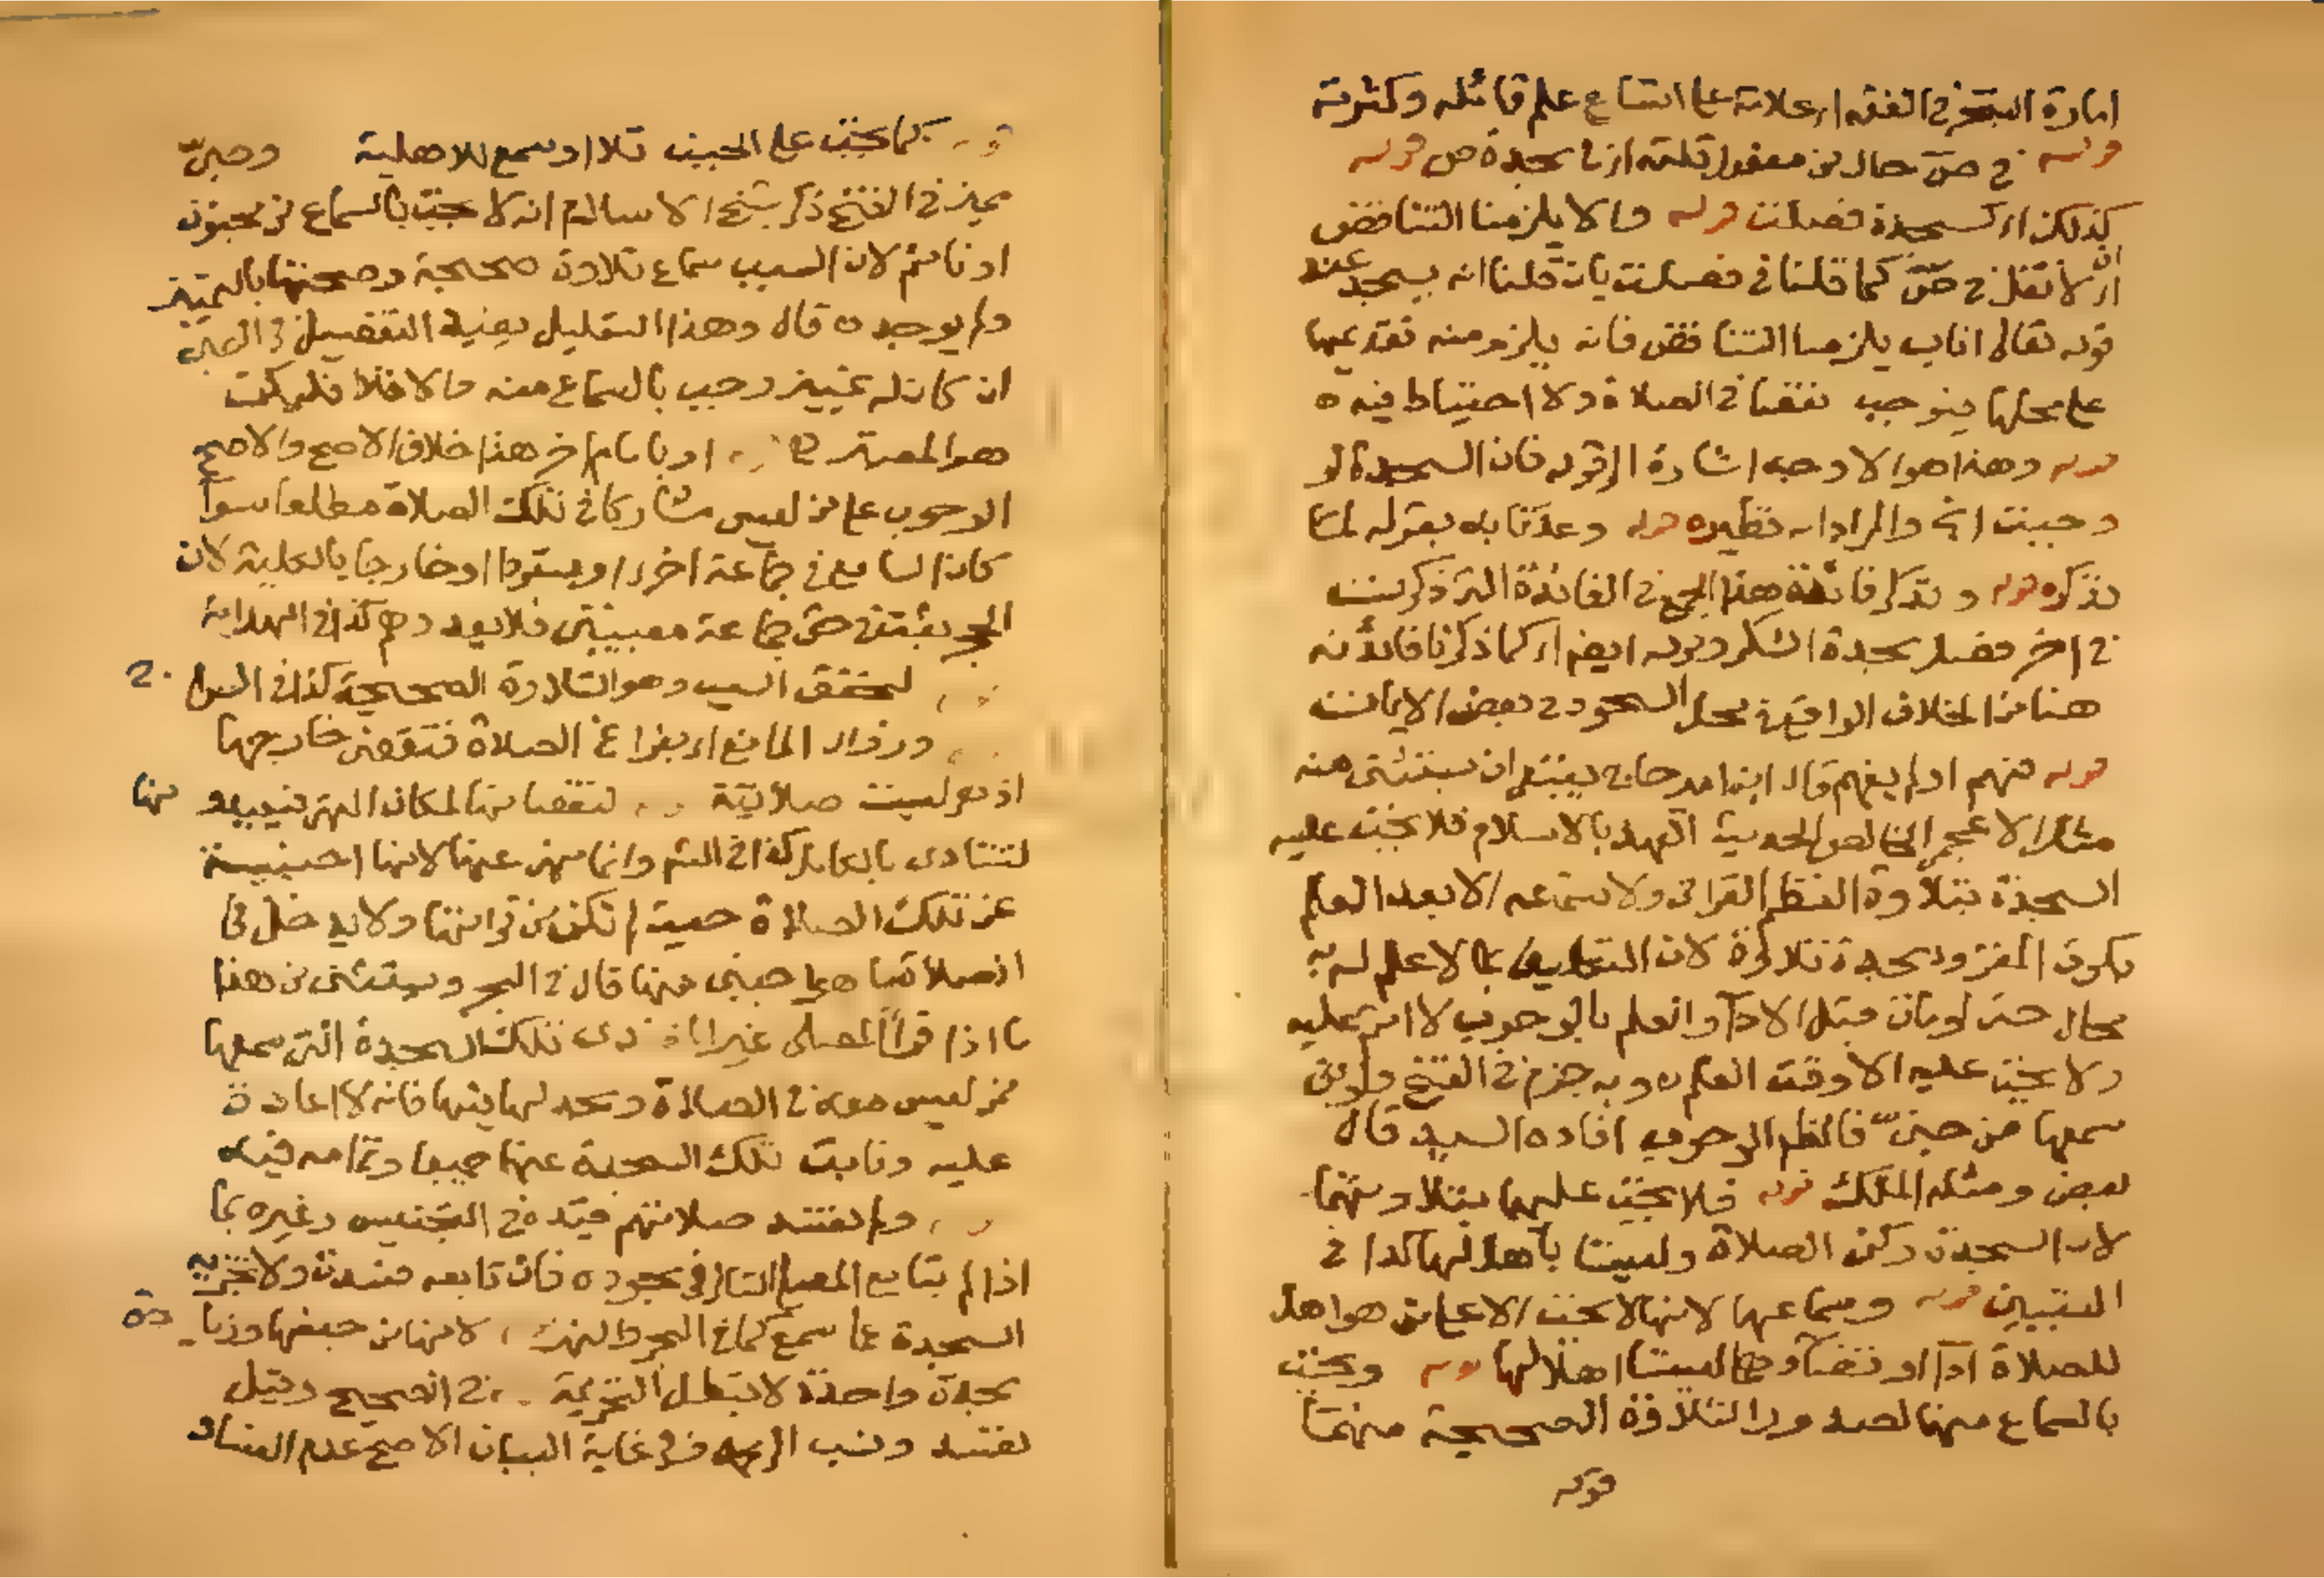 امارة التبحر في الفقه اى علامة على اتساع علم قائله وكثرته
قوله في ص حال من مفعول تلته اى سجدة ص قوله
كذلك اى كسجدة فصلت قوله والا يلزمنا التناقض
اى ان لا نقل في ص كما قلنا في فصلت بان قلنا انه يسجد عند
قوله تعالى اناب يلزمنا التناقض فانه يلزم منه تقديمها
على محلها فيوجب نقصا في الصلاة ولا احتياط فيه ه
قوله وهذا هو الاوجه اشارة الى قوله فان السجدة لو
وجبت الخ والمراد انه نظيره قوله وعدنا به بقوله لما
نذكره قوله وتذكر فائدة هذا الجمع في الفائدة التى ذكرت
في اخر فصل سجدة الشكر وقوله ايضا اى كما ذكرنا فائدته
هنا من الخلاف الواقع في محل السجود في بعض الايات
قوله فهم اولم يفهم قال ابن امير حاج ينبغي ان يستثنى منه
مثل الاعجمى الخالص الحديث العهد بالاسلام فلا يجب عليه
السجدة بتلاوة النظم القرانى ولا بسماعه الا بعد العلم
بكون المقرو سجدة تلاوة لان التكليف بما لا علم له به
محال حتى لو مات قبل الاداء والعلم بالوجوب لا اثم عليه
ولا يجب عليه الا وقت العلم ه وبه جزم في الفتح ولو من
سمعها من جنى فالظاهر الوجوب افاده السيد قال
بعض ومثله الملك قوله فلا يجب عليهما بتلاوتهما
لان السجدة ركن الصلاة وليستا باهل لها كذا في
التبيين قوله وسماعها لانها لا تجب الا على من هو اهل
للصلاة اداء او قضاء وهما ليستا اهلا لها قوله وتجب
بالسماع منهما لصدور التلاوة الصحيحة منهما
قوله
كما تجب على الجنب تلا او سمع للاهلية وصبى
مميز في الفتح ذكر شيخ الاسلام انه لا تجب بالسماع من مجنون
او نائم لان السبب سماع تلاوة صحيحة وصحتها بالتمييز
ولم يوجد ه قال وهذا التعليل يفيد التفصيل في الصبى
ان كان له تمييز وجب بالسماع منه والا فلا فليكن
هو المعتبر او بامام اخر هذا خلاف الاصح والاصح
الوجوب على من ليس مشاركا في تلك الصلاة مطلقا سواء
كان السامع في جماعة اخرى او منفردا او خارجا بالكلية لان
الحجر ثبت في حق جماعة معينين فلا يعدوهم كذا في الهداية
لتحقق السبب وهو التلاوة الصحيحة كذا في
وزوال المانع اى بفراغ الصلاة فتقضى خارجها
اذ هو ليست صلاتية لنقصانها لمكان النهى فيعيد ها
لتتادى بالكامل كذا في الشرح وانما نهى عنها لانها اجنبية
عن تلك الصلاة حيث لم تكن من قراءتها ولا يدخل في
الصلاة ما هو اجنبى منها قال في البحر ويستثنى من هذا
ما اذا قرأ المصلى غير تلك السجدة التى سمعها
ممن ليس معه في الصلاة وسجد لها فيها فانه لا اعادة
عليه ونابت تلك السجدة عنهما جميعا وتمامه فيه
ولم تفسد صلاتهم قيده في التجنيس وغيره بما
اذا لم يتابع المصلى التالى في سجوده فان تابعه فسدت ولا تجزيه
السجدة عما سمع كما في البحر والنهر لانها من جنسها وزيا دة
سجدة واحدة لا تبطل التحريمة في الصحيح وقيل
تفسد ونسب الى محمد ففى غاية البيان الاصح عدم الفساد